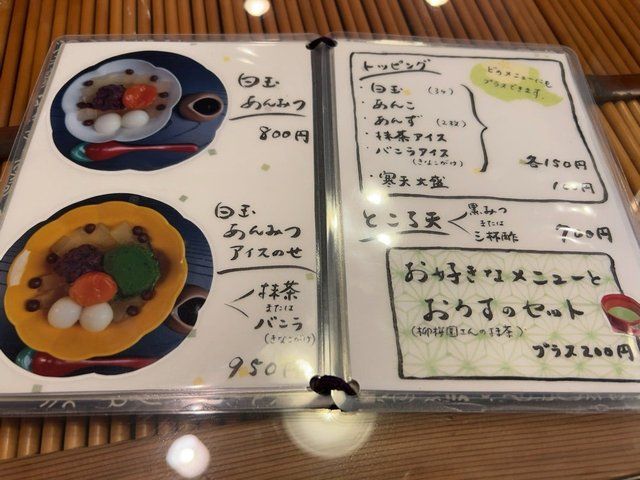 白玉
あんみつ
800円
白玉
あんみつ
アイスのせ
抹茶
または
バニラ
(きなこがけ)
950円
トッピング
どのメニューにも
プラスできます。
・白玉 (3ケ)
・あんこ
・あんず (2コ)
・抹茶アイス
・バニラアイス
(きなこがけ)
各150円
・寒天大盛
円
ところ天
黒みつ
または
三杯酢
700円
お好きなメニューと
おうすのセット
(柳桜園さんの抹茶)
プラス200円